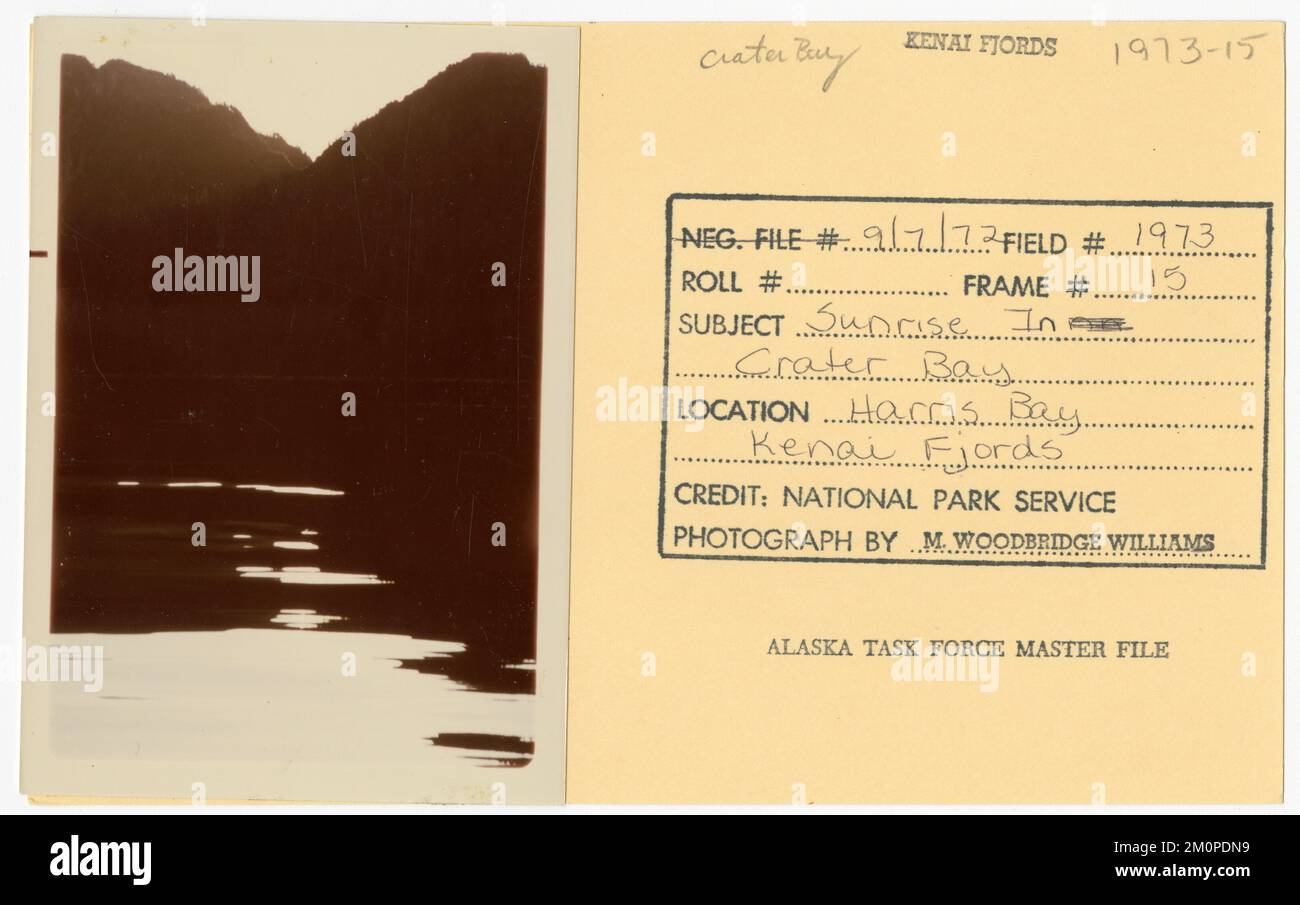 Crater Bay KENAI FJORDS 1973-15
NEG. FILE # 9/7/72 FIELD # 1973
ROLL # FRAME # 15
SUBJECT Sunrise In
Crater Bay
LOCATION Harris Bay
Kenai Fjords
CREDIT: NATIONAL PARK SERVICE
PHOTOGRAPH BY M. WOODBRIDGE WILLIAMS
ALASKA TASK FORCE MASTER FILE
alamy
alamy
alamy
alamy
alamy
alamy
Image ID: 2M0PDN9
www.alamy.com